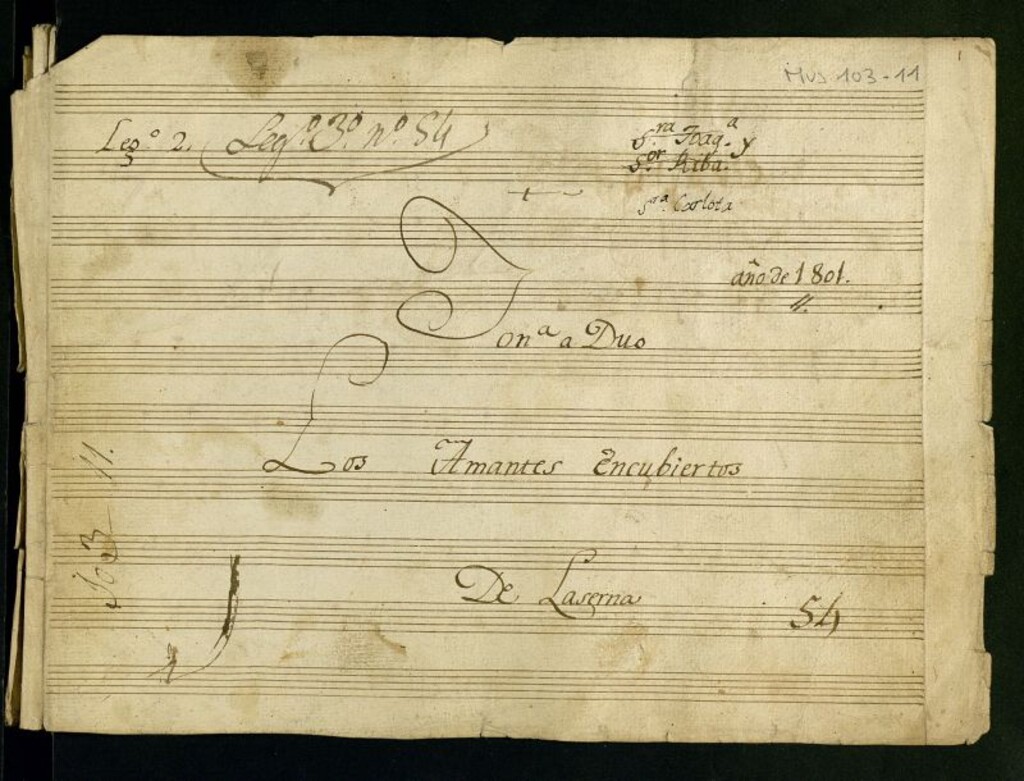 1
MUS 103-11
Leg.º 2. Leg.º 3.º nº. 54
S.ra Joaq.a y
S.or Riba.
S.ra Carlota
año de 1801.
Tonª a Duo
Los Amantes Encubiertos
De Laserna
54
103 11.